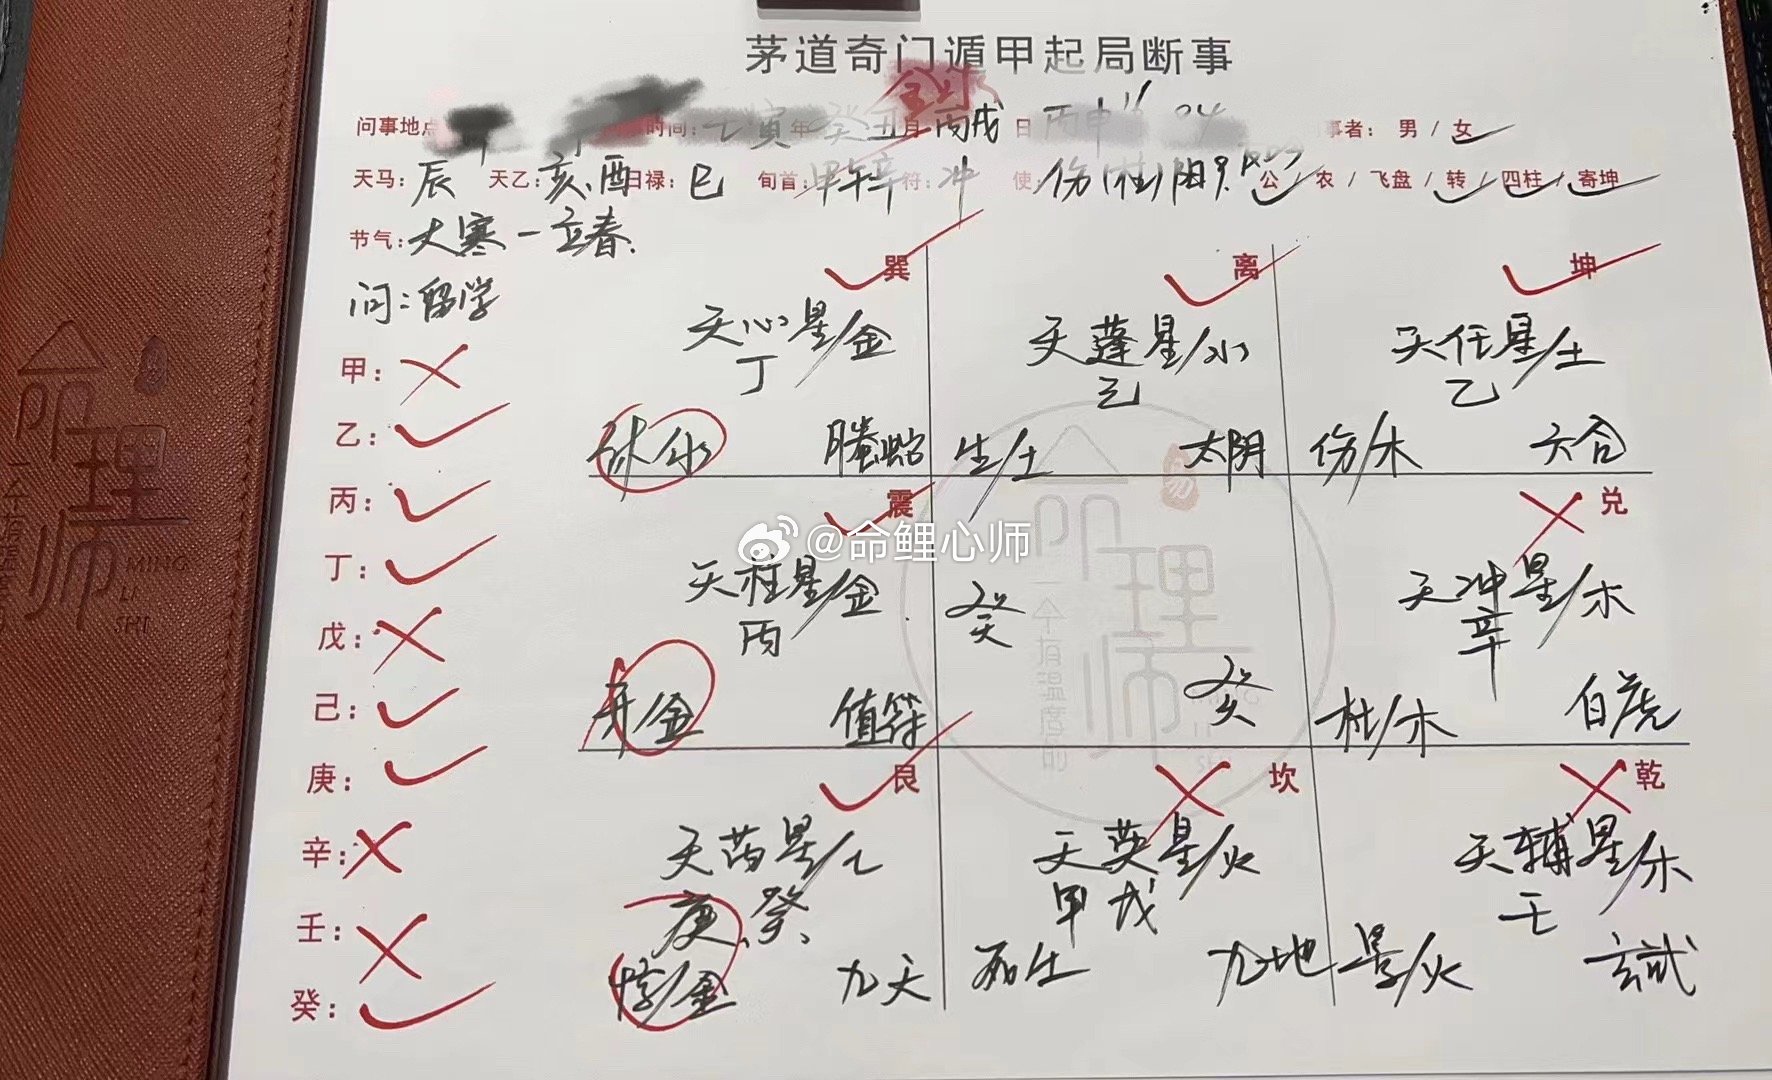 茅道奇门遁甲起局断事
问事地点 时间: 壬寅年 癸丑月 丙戌日 丙申 事者: 男 / 女
天马: 辰 天乙: 亥、酉 日禄: 巳 旬首: 甲午辛 符: 冲 使: 伤(杜) 阴9 公 / 农 / 飞盘 / 转 / 四柱 / 寄坤
节气: 大寒-立春.
问: 留学
甲:
乙:
丙:
丁:
戊:
己:
庚:
辛:
壬:
癸:
巽
天心星/金
丁
休/水 螣蛇
离
天蓬星/水
己
生/土 太阴
坤
天任星/土
乙
伤/木 六合
震
天柱星/金
丙
开/金 值符
癸
癸
兑
天冲星/木
辛
杜/木 白虎
艮
天芮星/土
庚、癸、
惊/金 九天
坎
天英星/火
甲戊
死/土 九地
乾
天辅星/木
壬
景/火 玄武
@命鲤心师
命理师
MING
LI
SHI
易